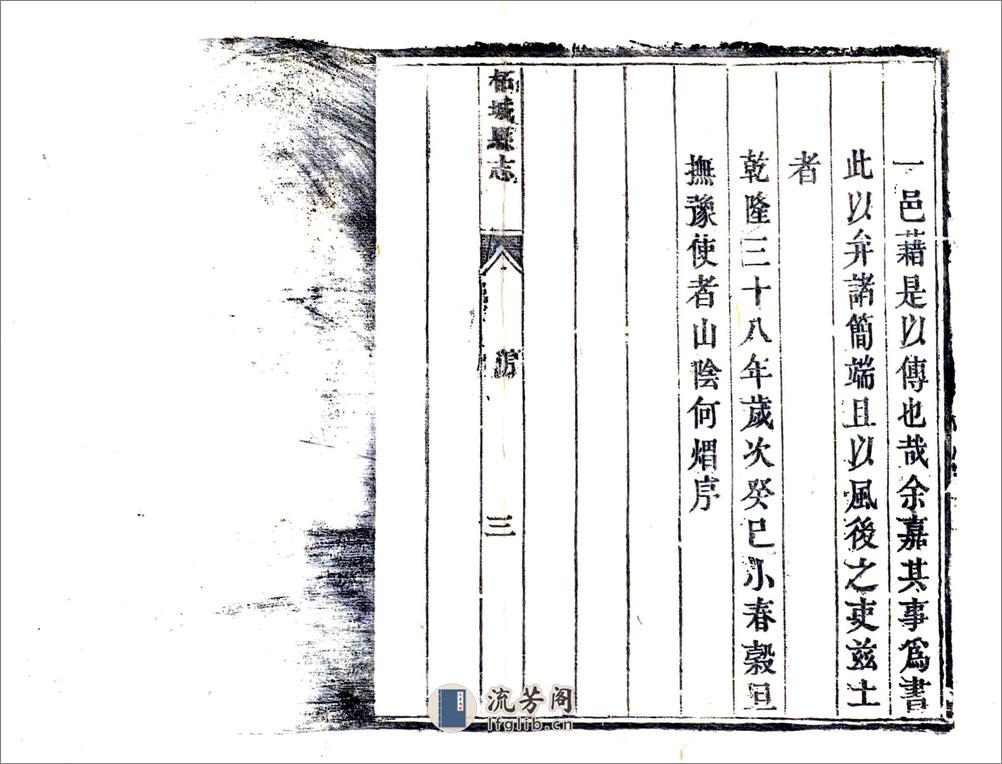 一邑藉是以傳也哉余嘉其事爲書
此以弁諸簡端且以風後之吏兹土
者
乾隆三十八年歲次癸巳小春穀旦
撫豫使者山陰何煟序
柘城縣志
三
流芳阁
lfglib.cn